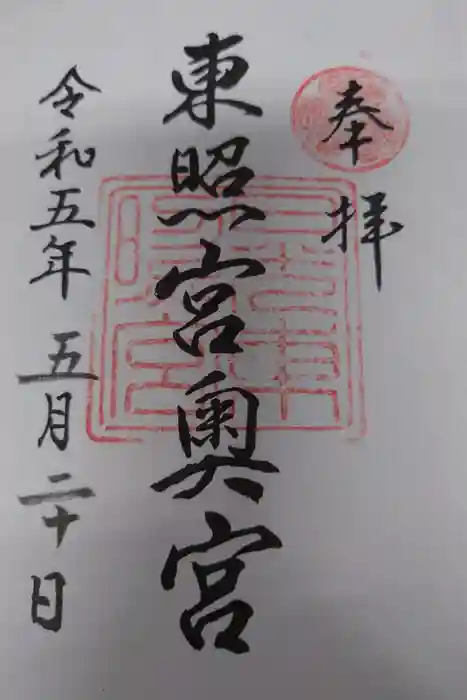 奉拝
東照宮奥宮
令和五年五月二十日